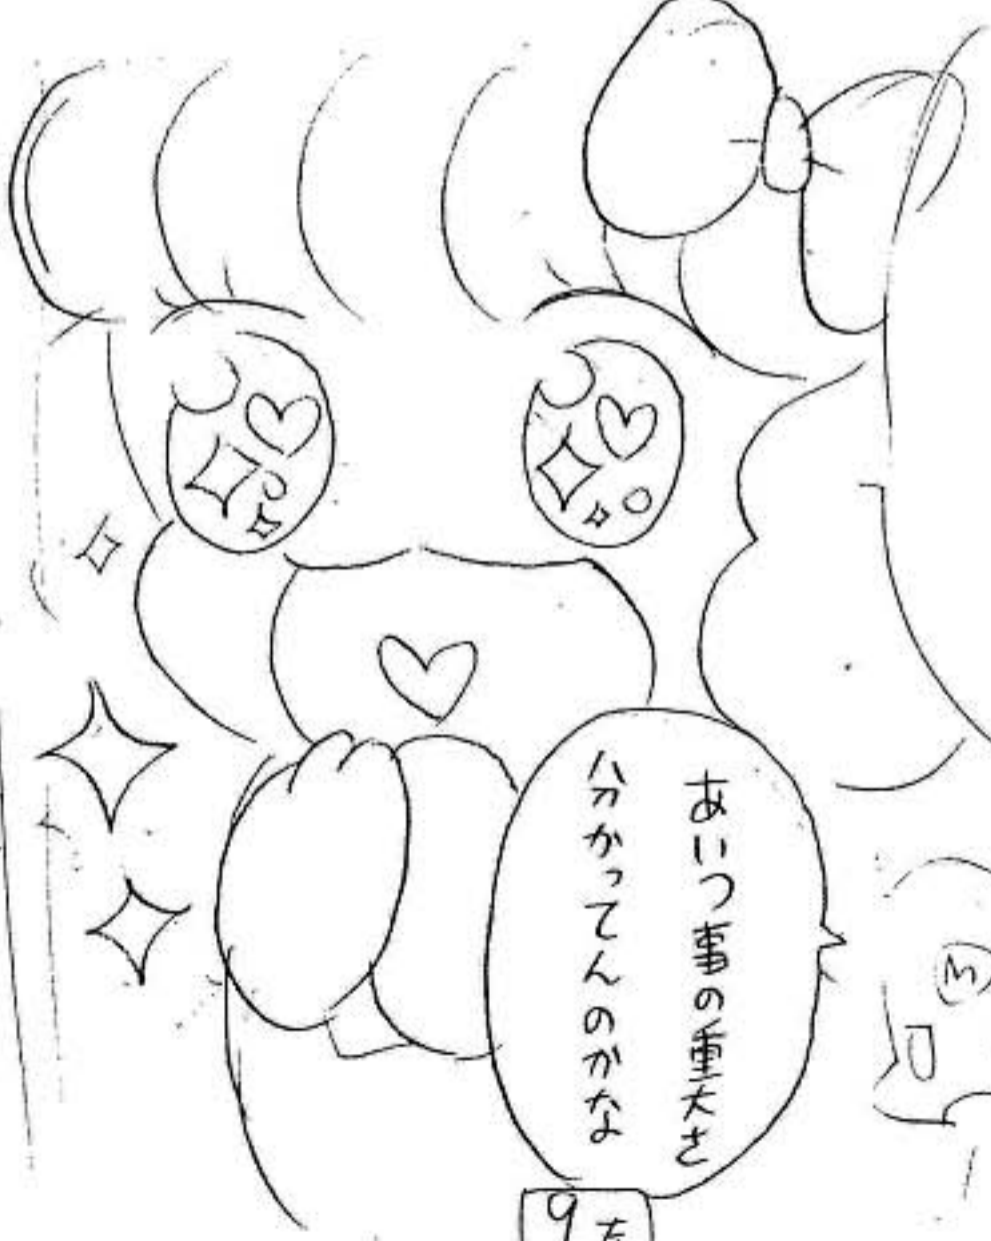 あいつ事の重大さ
分かってんのかな
M
9